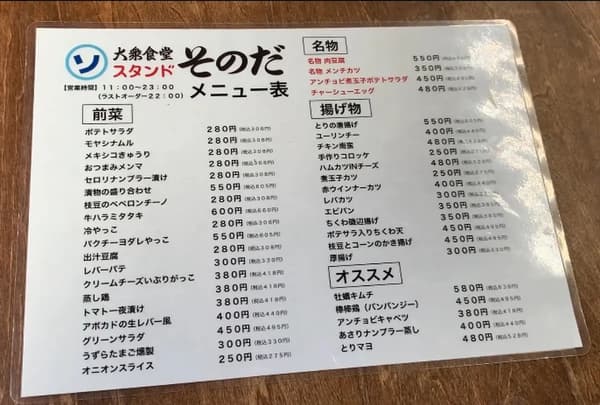 ソ 大衆食堂スタンド そのだ
【営業時間】11:00〜23:00
(ラストオーダー22:00)
メニュー表
前菜
ポテトサラダ 280円(税込308円)
モヤシナムル 280円(税込308円)
メキシコきゅうり 280円(税込308円)
おつまみメンマ 280円(税込308円)
セロリナンプラー漬け 280円(税込308円)
漬物の盛り合わせ 550円(税込605円)
枝豆のペペロンチーノ 280円(税込308円)
牛ハラミタタキ 600円(税込660円)
冷やっこ 280円(税込308円)
パクチーヨダレやっこ 550円(税込605円)
出汁豆腐 280円(税込308円)
レバーパテ 300円(税込330円)
クリームチーズいぶりがっこ 380円(税込418円)
蒸し鶏 380円(税込418円)
トマト一夜漬け 380円(税込418円)
アボカドの生レバー風 400円(税込440円)
グリーンサラダ 450円(税込495円)
うずらたまご燻製 300円(税込330円)
オニオンスライス 250円(税込275円)
名物
名物 肉豆腐 550円
名物 メンチカツ
アンチョビ煮玉子ポテトサラダ 450円
チャーシューエッグ 480円
揚げ物
とりの唐揚げ 550円
ユーリンチー
チキン南蛮
手作りコロッケ
ハムカツINチーズ
煮玉子カツ
赤ウインナーカツ
レバカツ 350円
エビパン 350円
ちくわ磯辺揚げ 350円
ポテサラ入りちくわ天 450円
枝豆とコーンのかき揚げ 450円
厚揚げ 300円(税込330円)
オススメ
牡蠣キムチ 580円(税込638円)
棒棒鶏(バンバンジー) 450円(税込495円)
アンチョビキャベツ 380円(税込418円)
あさりナンプラー蒸し 400円(税込440円)
とりマヨ 480円(税込528円)